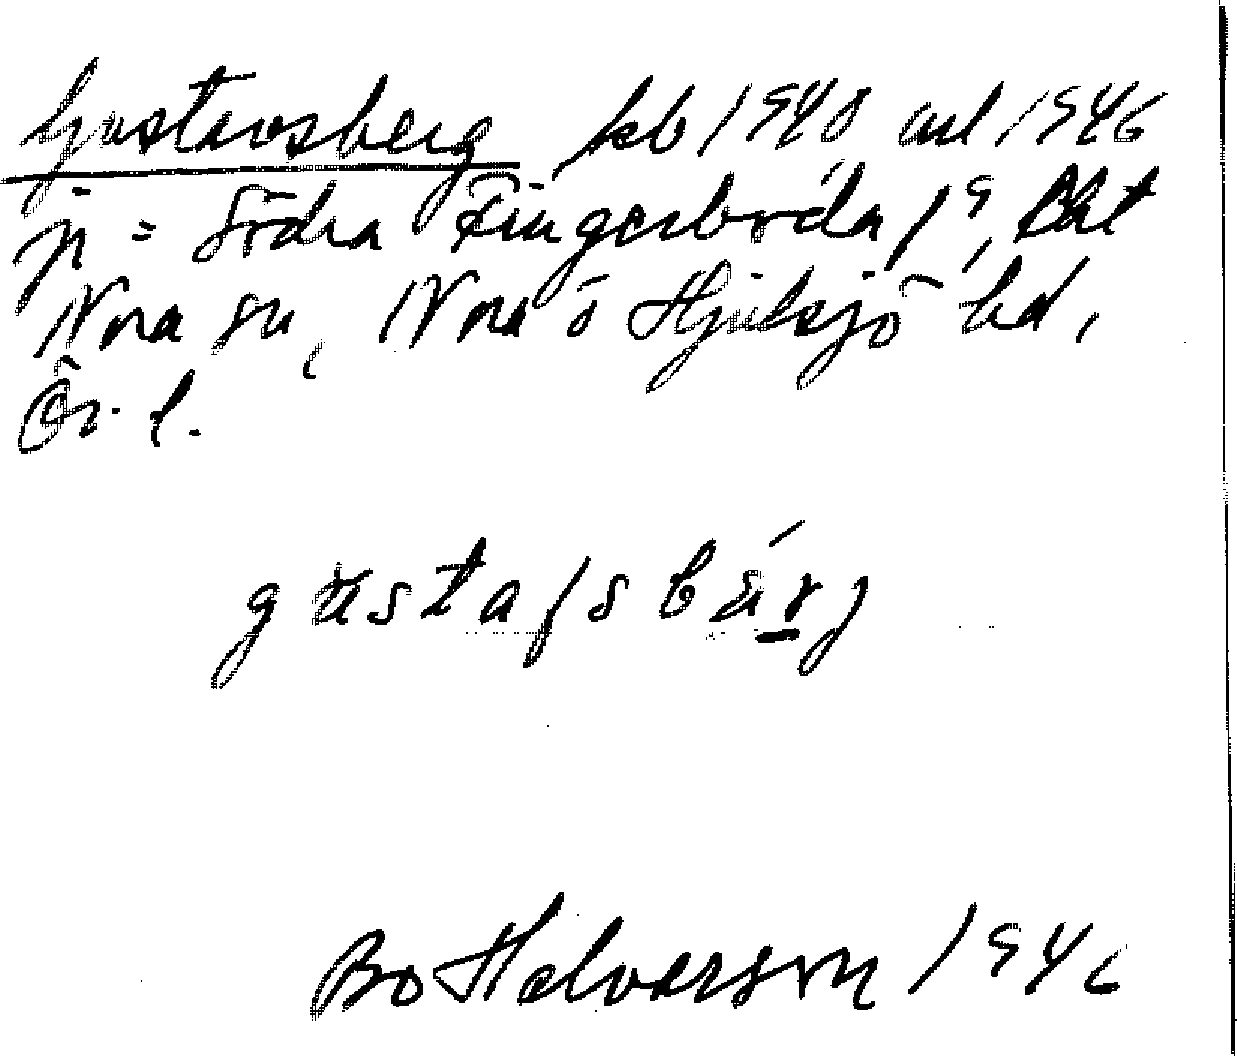 Gustavsberg kb 1940 avl 1946
jr = Södra Fingerboda 1⁹, Bht
Nora sn, Nora o Hjulsjö hd,
Ör. l.
gustafsbärj
Bo Halvarson 1946